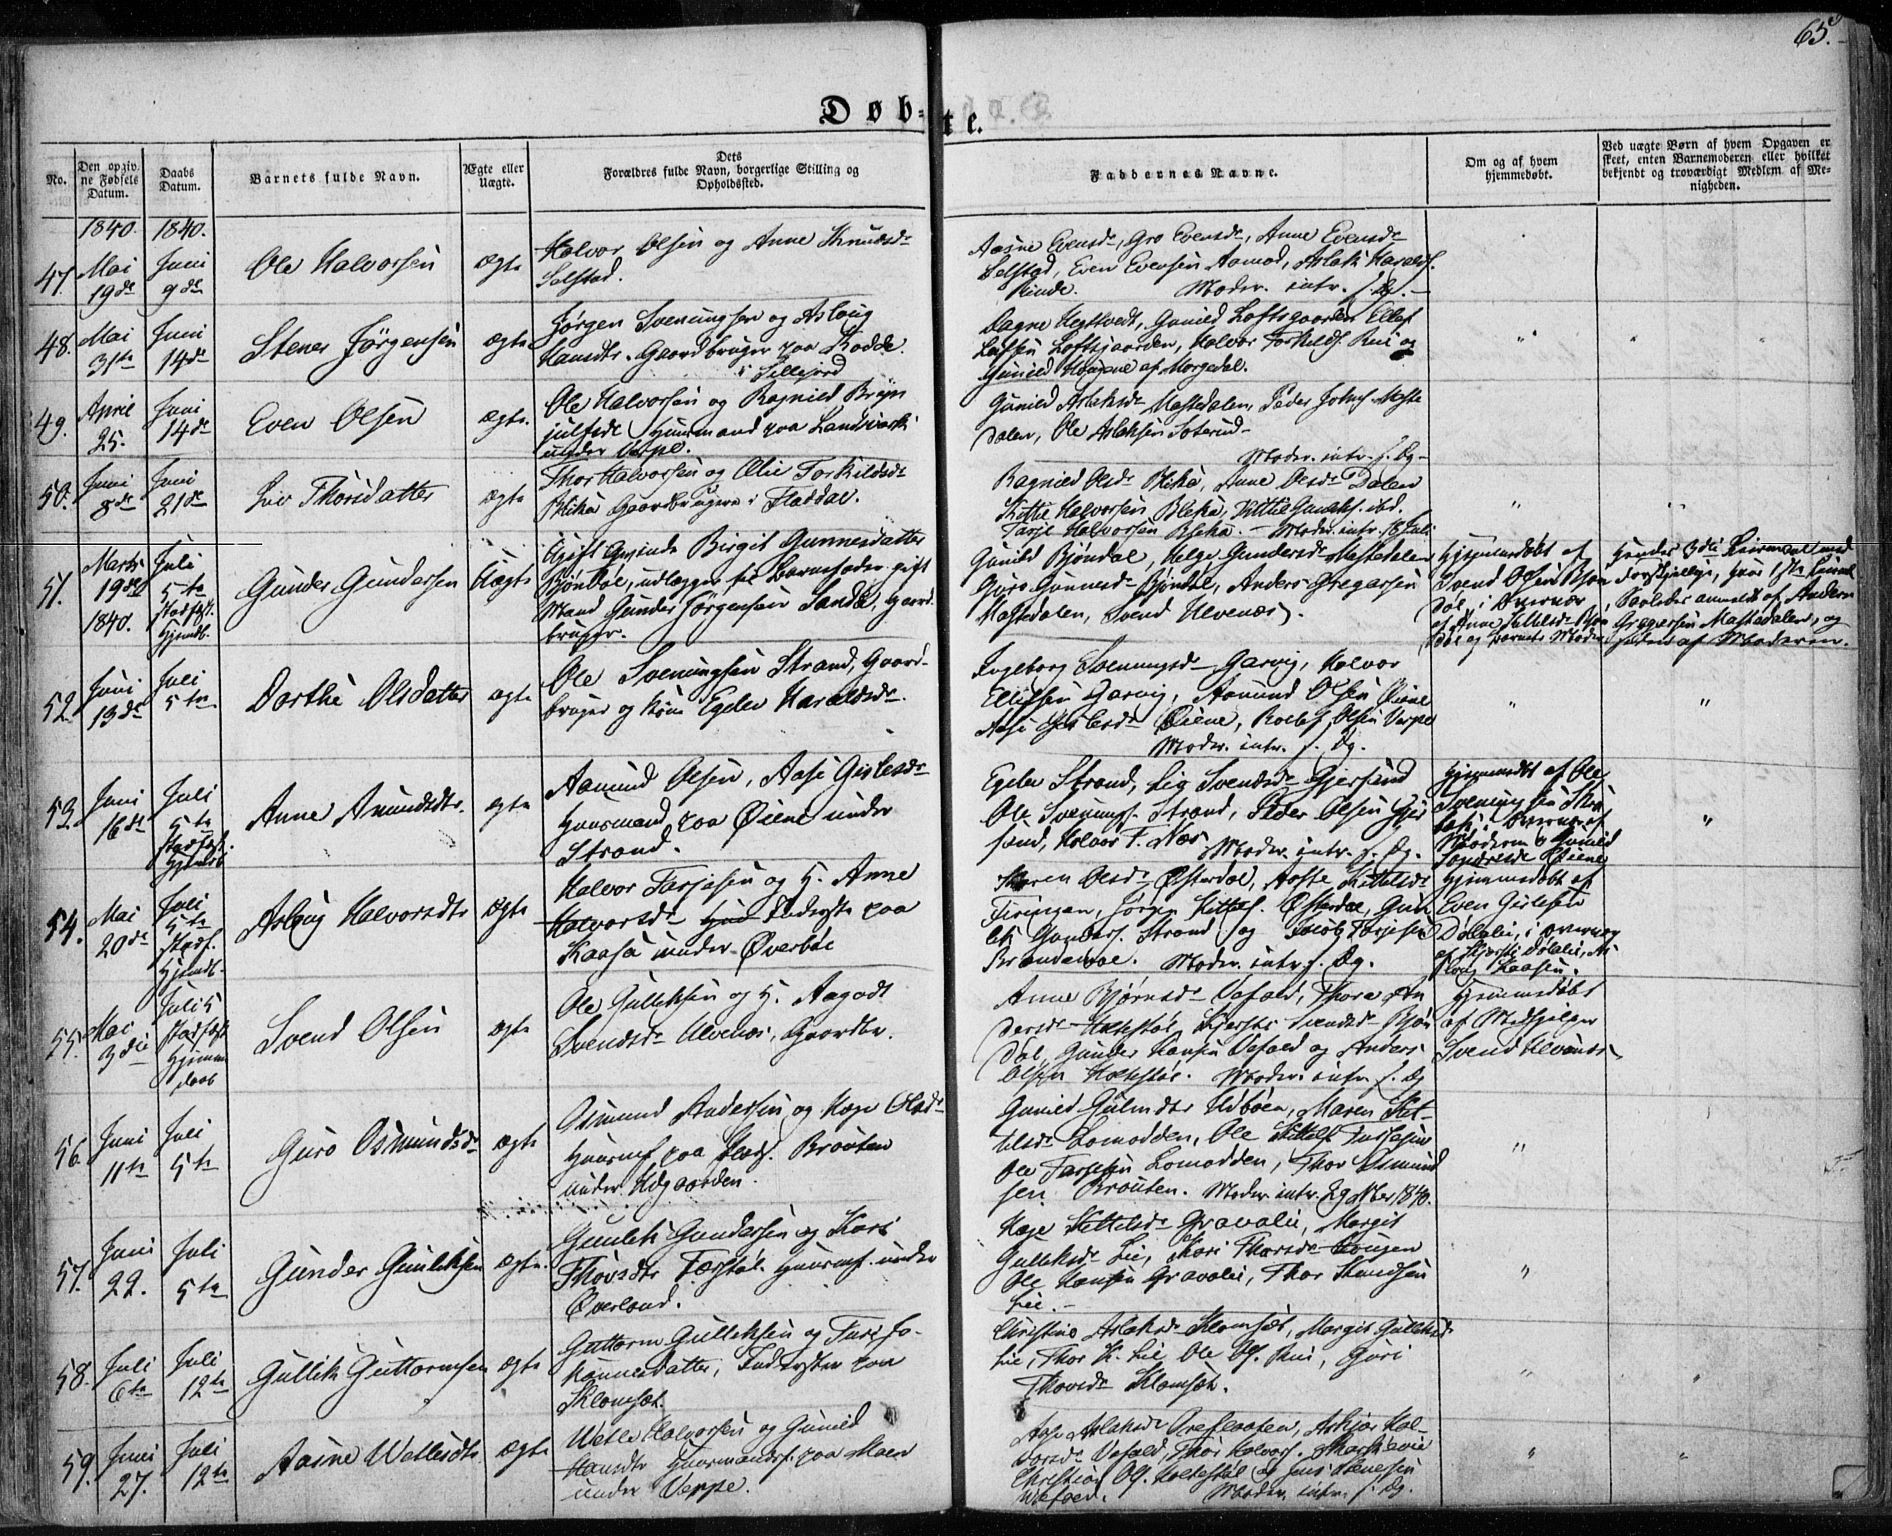 65.
Døb-te.
No.
Den opgiv.
ne Fødsels
Datum.
Daabs
Datum.
Barnets fulde Navn.
Ægte eller
Uægte.
Dets
Forældres fulde Navn, borgerlige Stilling og
Opholdssted.
Faddernes Navne.
Om og af hvem
hjemmedøbt.
Ved uægte Børn af hvem Opgaven er
skeet, enten Barnemoderen eller hvilket
bekjendt og troværdigt Medlem af Me-
nigheden.
47.
1840.
Mai
19de
1840.
Juni
9de
Ole Halvorsen
ægte
Halvor Olsen og Anne Knudsdr
Selstad.
Aasne Evensdr, Gro Evensdr, Anne Evensdr
Selstad, Even Evensen Aamod, Aslak Haralds.
Rinde. Moder. intr. s. Dg.
48.
Mai
31te
Juni
14de
Stener Jørgensen
ægte
Jørgen Svenungsen og Aslaug
Hansdtr. Gaardbruger paa Rodde
i Sillejord
Dagne Hegtvedt, Gunild Loftsgaarden Ellef
Leifsen Loftsgaarden, Halvor Torkilds. Rui og
Gunild af Morgedal.
49.
April
25.
Juni
14de
Even Olsen
ægte.
Ole Halvorsen og Ragnild Bryn
julfsdr Huusmand paa Landsverk
under Verpe.
Gunild Aslaksdr Mastedalen, Peder Johns. Maste
dalen, Ole Aslaksen Soterud
Moder. intr. s. Dg.
50.
Juni
8de
Juni
21de
Liv Thorsdatter
ægte
Thor Halvorsen og Torkildsdr
Bleka Gaardbrugere i Flatdal.
Ragnild Olsdr Bleka, Anne Olsdr Dalen
Kittil Halvorsen Bleka, ibd.
Tarje Halvorsen Bleka. Moder. intr. 18 Juli
51.
Marts
19de
1840.
Juli
5te
Stadfæst.
Hjemdb.
Gunder Gundersen
Uægte
Ugift Birgit Gunnesdatter
Bjøndal, udlægger til Barnefader gift
Mand Gunder Jørgensen Sanda, Gaard
bruger.
Gunild Bjøndal, Helge Gundersdr Mastedalen
Guro Gunnesdr Bjøndal, Anders Gregersen
Mastedalen, Svend Ulvenæs.
Hjemmedøbt af
Svend Olsen Bjøn
dal, i Overvær
af Anne
dal og Barnets Moder
Hendes 3die Leiermaal med
forskjellige, hans 1ste Leierm
Saaledes anmeldt af Anders
Gregersen Mastedalen, og
siden af Moderen.
52.
Juni
13de
Juli
5te
Dorthe Olsdatter
ægte
Ole Svenungsen Strand, Gaard-
bruger og Kone Egelev Haraldsdr.
Ingeborg Svenungsdr Garvig, Halvor
Ellefsen Garvig, Aamund Olsen Øiene
Aase Gislesdr Øiene, Roelef Olsen Verpe
Moder. intr. s. Dg.
53.
Juni
16de
Juli
5te
Stadfæst.
Hjemdb
Anne Amundsdtr.
ægte
Aamund Olsen, Aase Gislesdr
Huusmand paa Øiene under
Strand.
Egelev Strand, Svendsdr Gjersund
Ole Svenungs. Strand, Peder Olsen Gjer
sund, Halvor T. Næs Moder. intr. s. Dg.
Hjemmedøbt af Ole
Svenungsen
i Overvær af
Moderen & Gunild
Øiene
54.
Mai
20de
Juli
5te
Stadf.
Hjemdb.
Aslaug Halvorsdtr
ægte
Halvor Tarjesen og H. Anne
Halvorsdr Inderste paa
Kaasa under Øverbøe
Karen Olsdr Østerdal, Aaste Kittilsdr
Jørgen Kittels. Østerdal, Gun
lek Gunders. Strand og Jacob Tarjesen
Moder. intr. s. Dg.
Hjemmedøbt af
Even Gislesen
Dalalie, i Overvær
af Kjersti Dalalie, As
laug Kaasen.
55.
Mai
3die
Juli 5
Stadfæst
Hjemme
daab
Svend Olsen
ægte
Ole Gulleksen og H. Aagodt
Svendsdr Ulvenæs, Gaardbr.
Anne Bjørnsdr Vefald, Thora An
dersdr Hækstøl, Kjersti Svendsdr Bjøn
dal, Gunder Hansen Vefald og Anders
Olsen Hækstøl. Moder. intr. s. Dg
Hjemmedøbt
af Medhjelper
Svend Ulvenæs
56.
Juni
11te
Juli
5te
Guro Osmundsdr
ægte
Osmund Andersen og Hæge Olsdr
Huusmf. paa Brouten
under Udgaarden.
Gunild Udbøen, Maren Kit-
tilsdr Lomodden, Ole Kittils.
Ole Tarjesen Lomodden, Thor Osmund
sen Brouten. Moder. intr. 29 1840.
57.
Juni
22.
Juli
5te
Gunder Gunleksen
ægte.
Gunlek Gundersen og Kari
Thorsdtr Huusmf. under
Øverland.
Hæge Kittilsdr Gravalie, Margit
Gulleksdr Lie, Kari Thorsdr Haugen
Ole Hansen Gravalie, Thor Knudsen
Lie.
58.
Juli
6te
Juli
12te
Gullik Guttormsen
ægte
Guttorm Gulleksen og Turi Jo-
hannesdatter, Inderster paa
Klomset.
Christine Aslaksdr Klomset, Margit Gulleksdr
Lie, Thor K. Lie, Ole Ols. Rui, Guri
Thovsdr Klomset.
59.
Juni
27.
Juli
12te
Aasne Wetlesdtr
ægte
Wetle Halvorsen og Gunild
Hansdtr Huusmandsf. paa Moen
under Verpe.
Aase Aslaksdr Askjær Hal-
vorsdr Vefald, Thor Halvors.
Christian Ols. Hækstøl og Jens Stenersen
Vefald. Moder. intr. s. Dg.